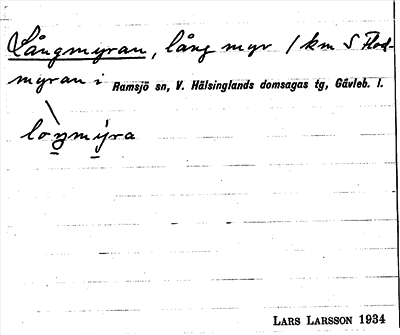 Långmyran, lång myr 1 km S Flod-
myran i Ramsjö sn, V. Hälsinglands domsagas tg, Gävleb. l.
lòŋmýra
LARS LARSSON 1934